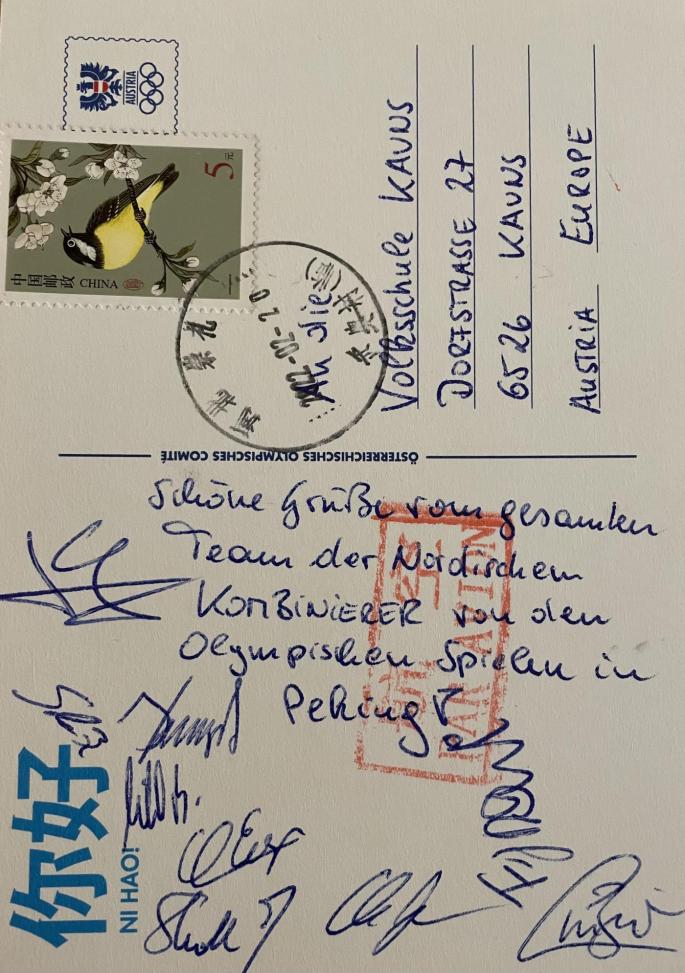 AUSTRIA
5元
中国邮政 CHINA
An die
Volksschule KAUNS
DORFSTRASSE 27
6526 KAUNS
AUSTRIA EUROPE
ÖSTERREICHISCHES OLYMPISCHES COMITÉ
Schöne Grüße vom gesamten
Team der Nordischen
KOMBINIERER von den
Olympischen Spielen in
Peking
PAR AVION
你好
NI HAO!